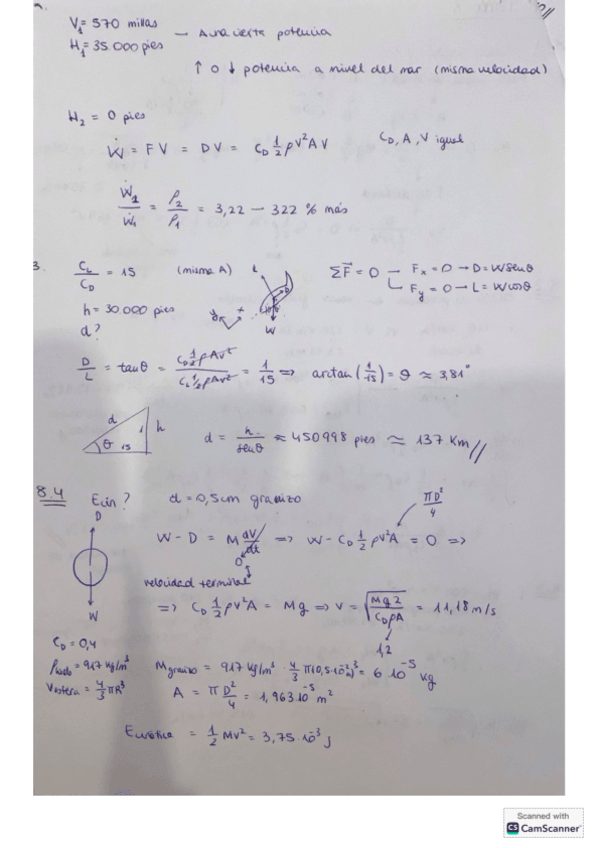 V₁ = 570 millas — A una cierta potencia
H₁ = 35.000 pies
↑ o ↓ potencia a nivel del mar (misma velocidad)
H₂ = 0 pies
Ẇ = FV = DV = C_D 1/2 ρV²AV    C_D, A, V igual
Ẇ₂/Ẇ₁ = ρ₂/ρ₁ = 3,22 — 322 % más
3. C_L/C_D = 15 (misma A)    ΣF⃗ = 0 — F_x = 0 → D = W senθ
F_y = 0 → L = W cosθ
h = 30.000 pies
d?
L D x y W
D/L = tanθ = C_D 1/2 ρAV² / C_L 1/2 ρAV² = 1/15 ⇒ arctan(1/15) = θ ≈ 3,81°
d h θ 15 1
d = h/senθ ≈ 450998 pies ≈ 137 Km //
8.4 Ecin? d = 0,5cm granizo    πD²/4
D
W
W - D = M dV/dt ⇒ W - C_D 1/2 ρV²A = 0 ⇒
0
velocidad terminal
⇒ C_D 1/2 ρV²A = Mg ⇒ V = √(Mg2/C_DρA) = 11,18 m/s
1,2
C_D = 0,4
ρhielo = 917 kg/m³
Vesfera = 4/3 πR³
Mgranizo = 917 kg/m³ · 4/3 π(0,5·10⁻²)³ = 6·10⁻⁵ kg
A = π D²/4 = 1,963·10⁻⁵ m²
Ecinética = 1/2 MV² = 3,75·10⁻³ J
Scanned with
CS CamScanner